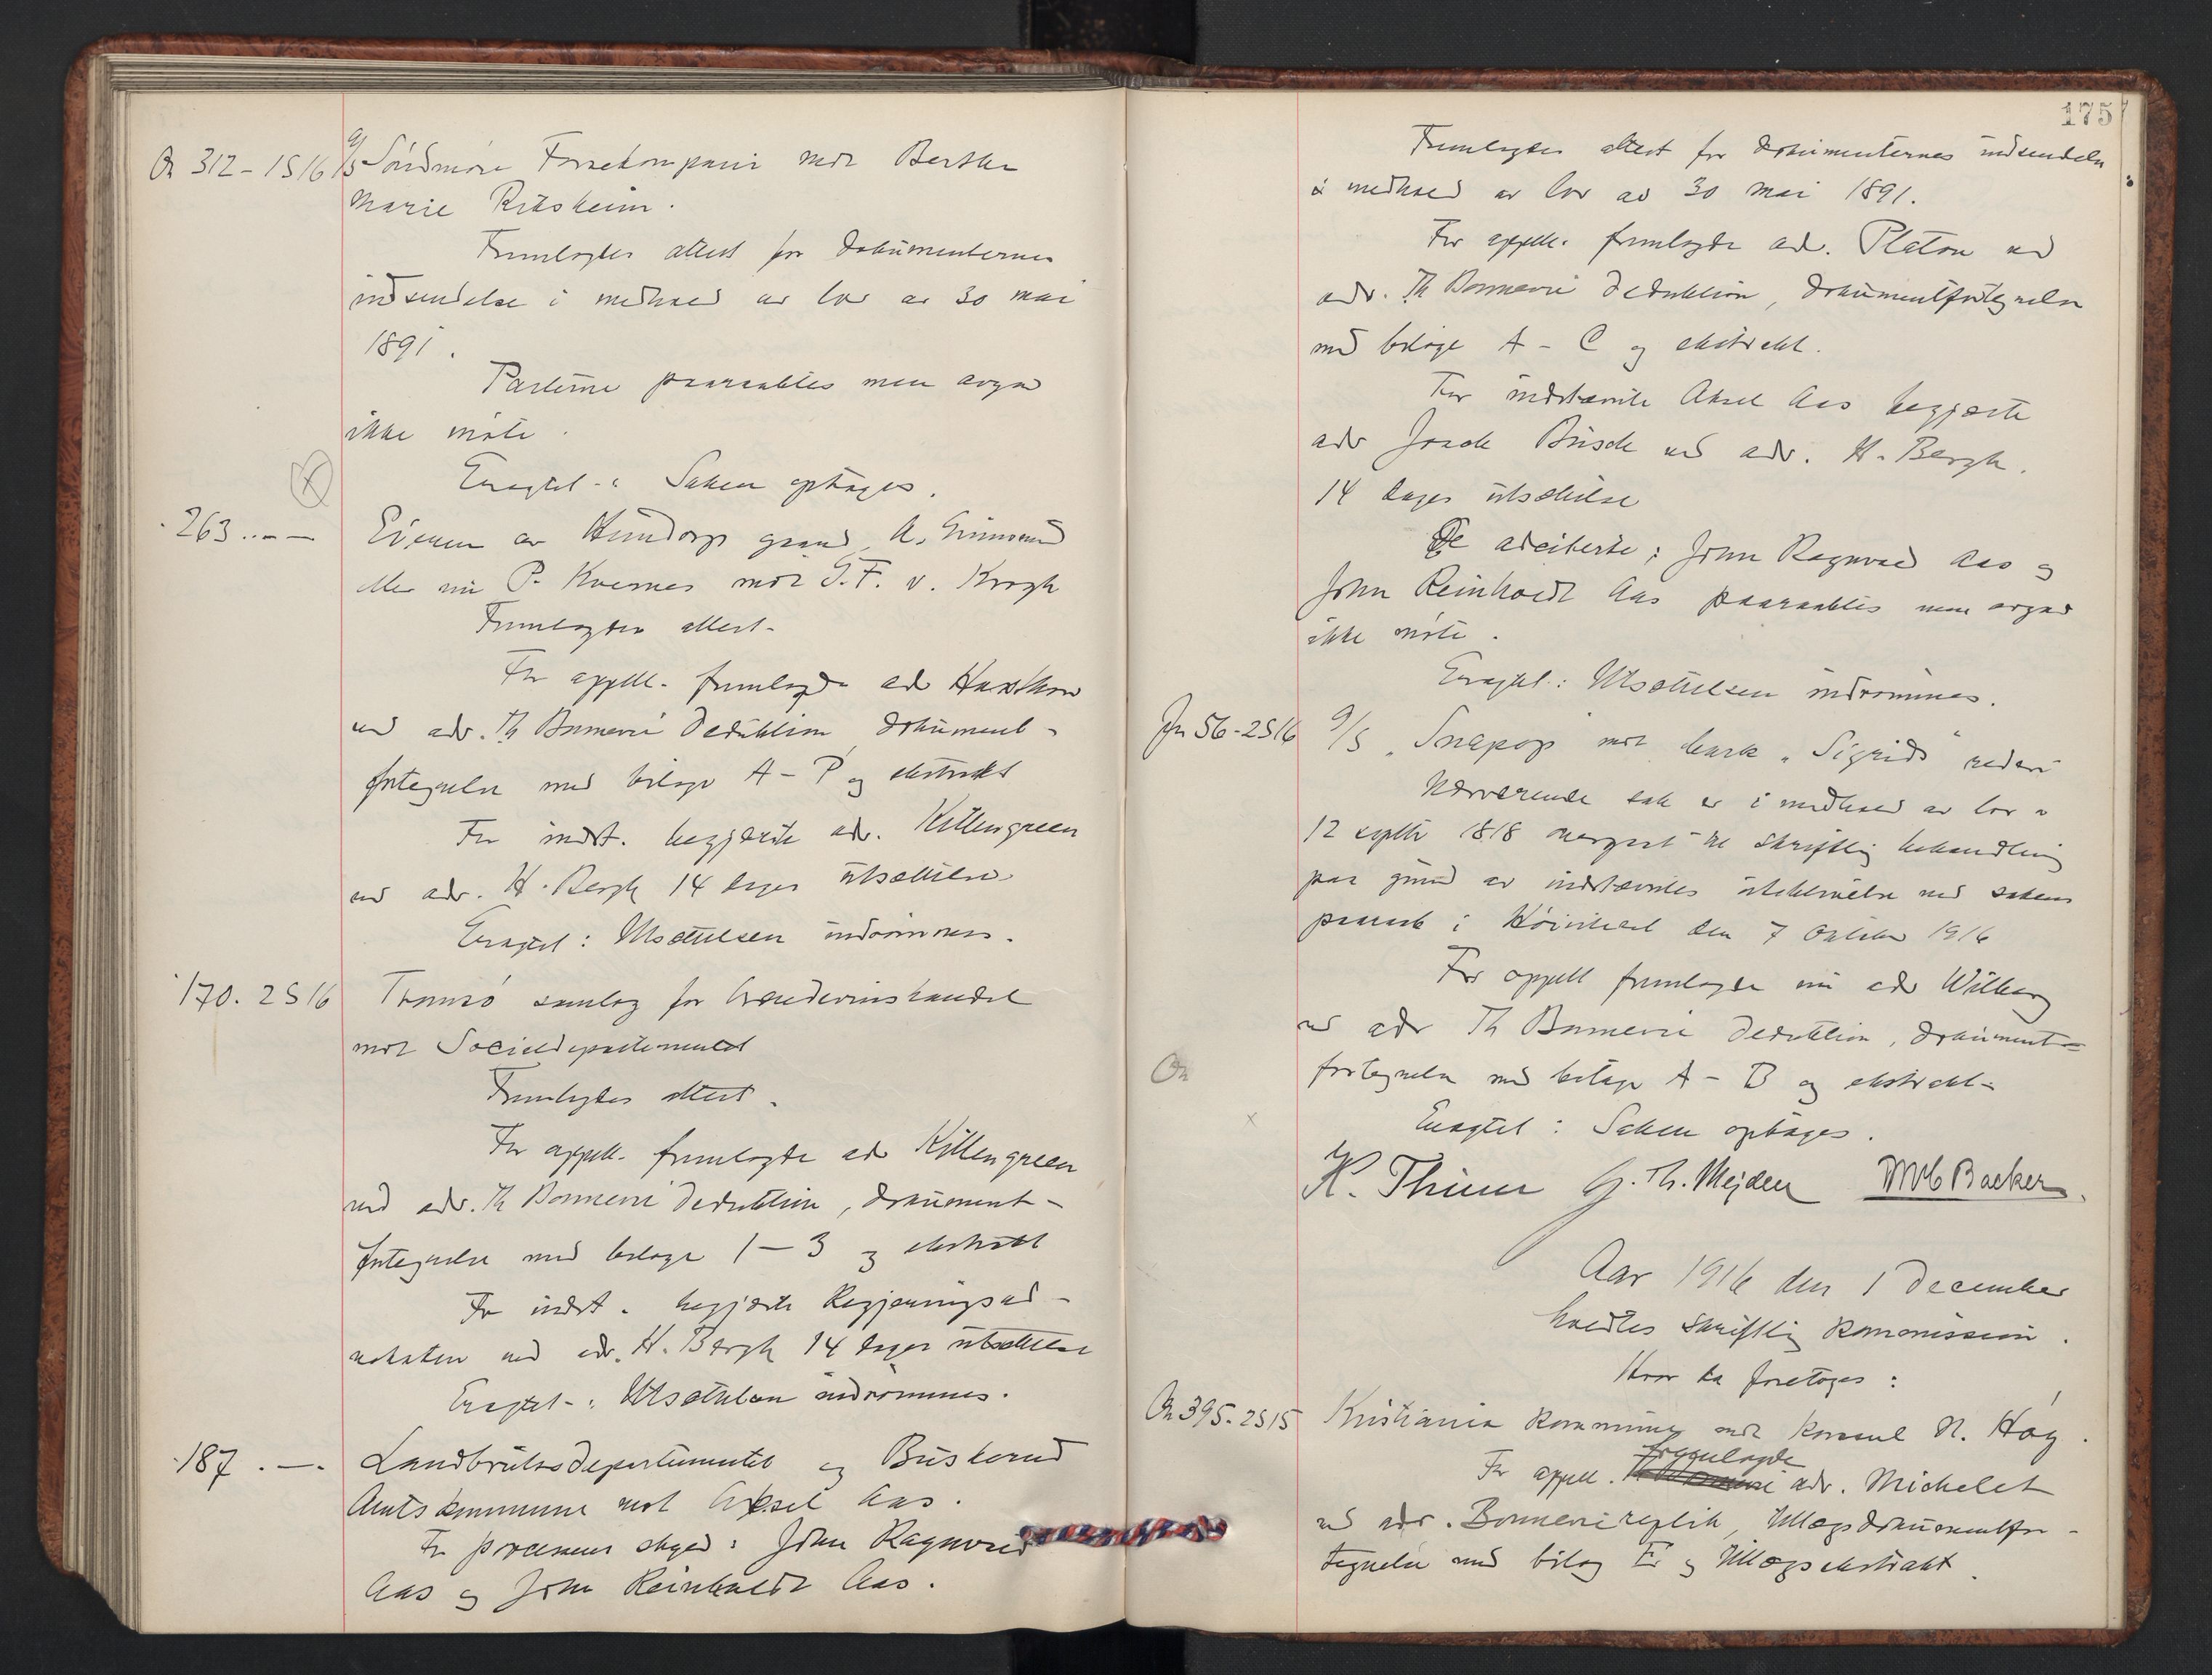 On 312 - 1 S 16 A/S Söndmöre Fossekompani mot Berthe
Marie Ritsheim.
Fremlagdes attest for dokumenternes
indsendelse i medhold av lov av 30 mai
1891.
Parterne paaraabtes men avga
ikke möte.
Eragtet: Saken optages.
263 " - — Eieren av Hundorp gaard, A.
eller nu P. Kvernes mot G. F. v. Krogh
Fremlagdes attest.
For appell. fremlagde adv Haxthow
ved adv. Th Bonnevie deduktion, dokument-
fortegnelse med bilage A - P og ekstrakt
For indst. begjærte adv. Killengreen
ved adv. H. Bergh 14 dages utsættelse.
Eragtet: Utsættelsen indrömmes.
170. 2 S 16 Tromsö samlag for brændevinshandel
mot Socialdepartementet
Fremlagdes attest.
For appell. fremlagde adv Killengreen
ved adv. Th Bonnevie deduktion, dokument-
fortegnelse med bilage 1 — 3 og ekstrakt
For indst. begjærte Regjeringsad-
vokaten ved adv. H. Bergh 14 dages utsættelse
Eragtet: Utsættelsen indrömmes.
187 . —. Landbruksdepartementet og Buskerud
Amtskommune mot Aksel Aas.
For processens skyld: John Ragnvald
Aas og John Reinholdt Aas.
175
Fremlagdes attest for dokumenternes indsendelse
i medhold av lov av 30 mai 1891.
For appell. fremlagde adv. Platou ved
adv. Th Bonnevie deduktion, dokumentfortegnelse
med bilage A - C og ekstrakt.
For indstævnte Aksel Aas begjærte
adv Busch ved adv. H. Bergh.
14 dages utsættelse
De adciterte: John Ragnvald Aas og
John Reinholdt Aas paaraabtes men avgav
ikke möte.
Eragtet: Utsættelsen indrömmes.
Jn 56 - 2 S 16 A/S "Snapop" mot bark "Sigrids" rederi
Nærværende sak er i medhold av lov a
12 septbr 1818 overgaat til skriftlig behandling
paa grund av indstævntes uteblivelse ved sakens
paaraab i Höiesteret den 7 Oktober 1916
For appell fremlagde nu adv Wilberg
ved adv Th Bonnevie deduktion, dokument=
fortegnelse med bilage A - B og ekstrakt-
On
x
Eragtet: Saken optages.
K. Thinn G. Th. Mejdell Backer.
Aar 1916 den 1 december
holdtes skriftlig kommission.
Hvor da foretoges:
On 395. 2 S 15 Kristiania kommune mot konsul N. Höy.
fremlagde
For appell. adv. Michelet
ved adv. Bonnevie replik, tillægsdokumentfor-
tegnelse med bilag E og tillægsekstrakt.